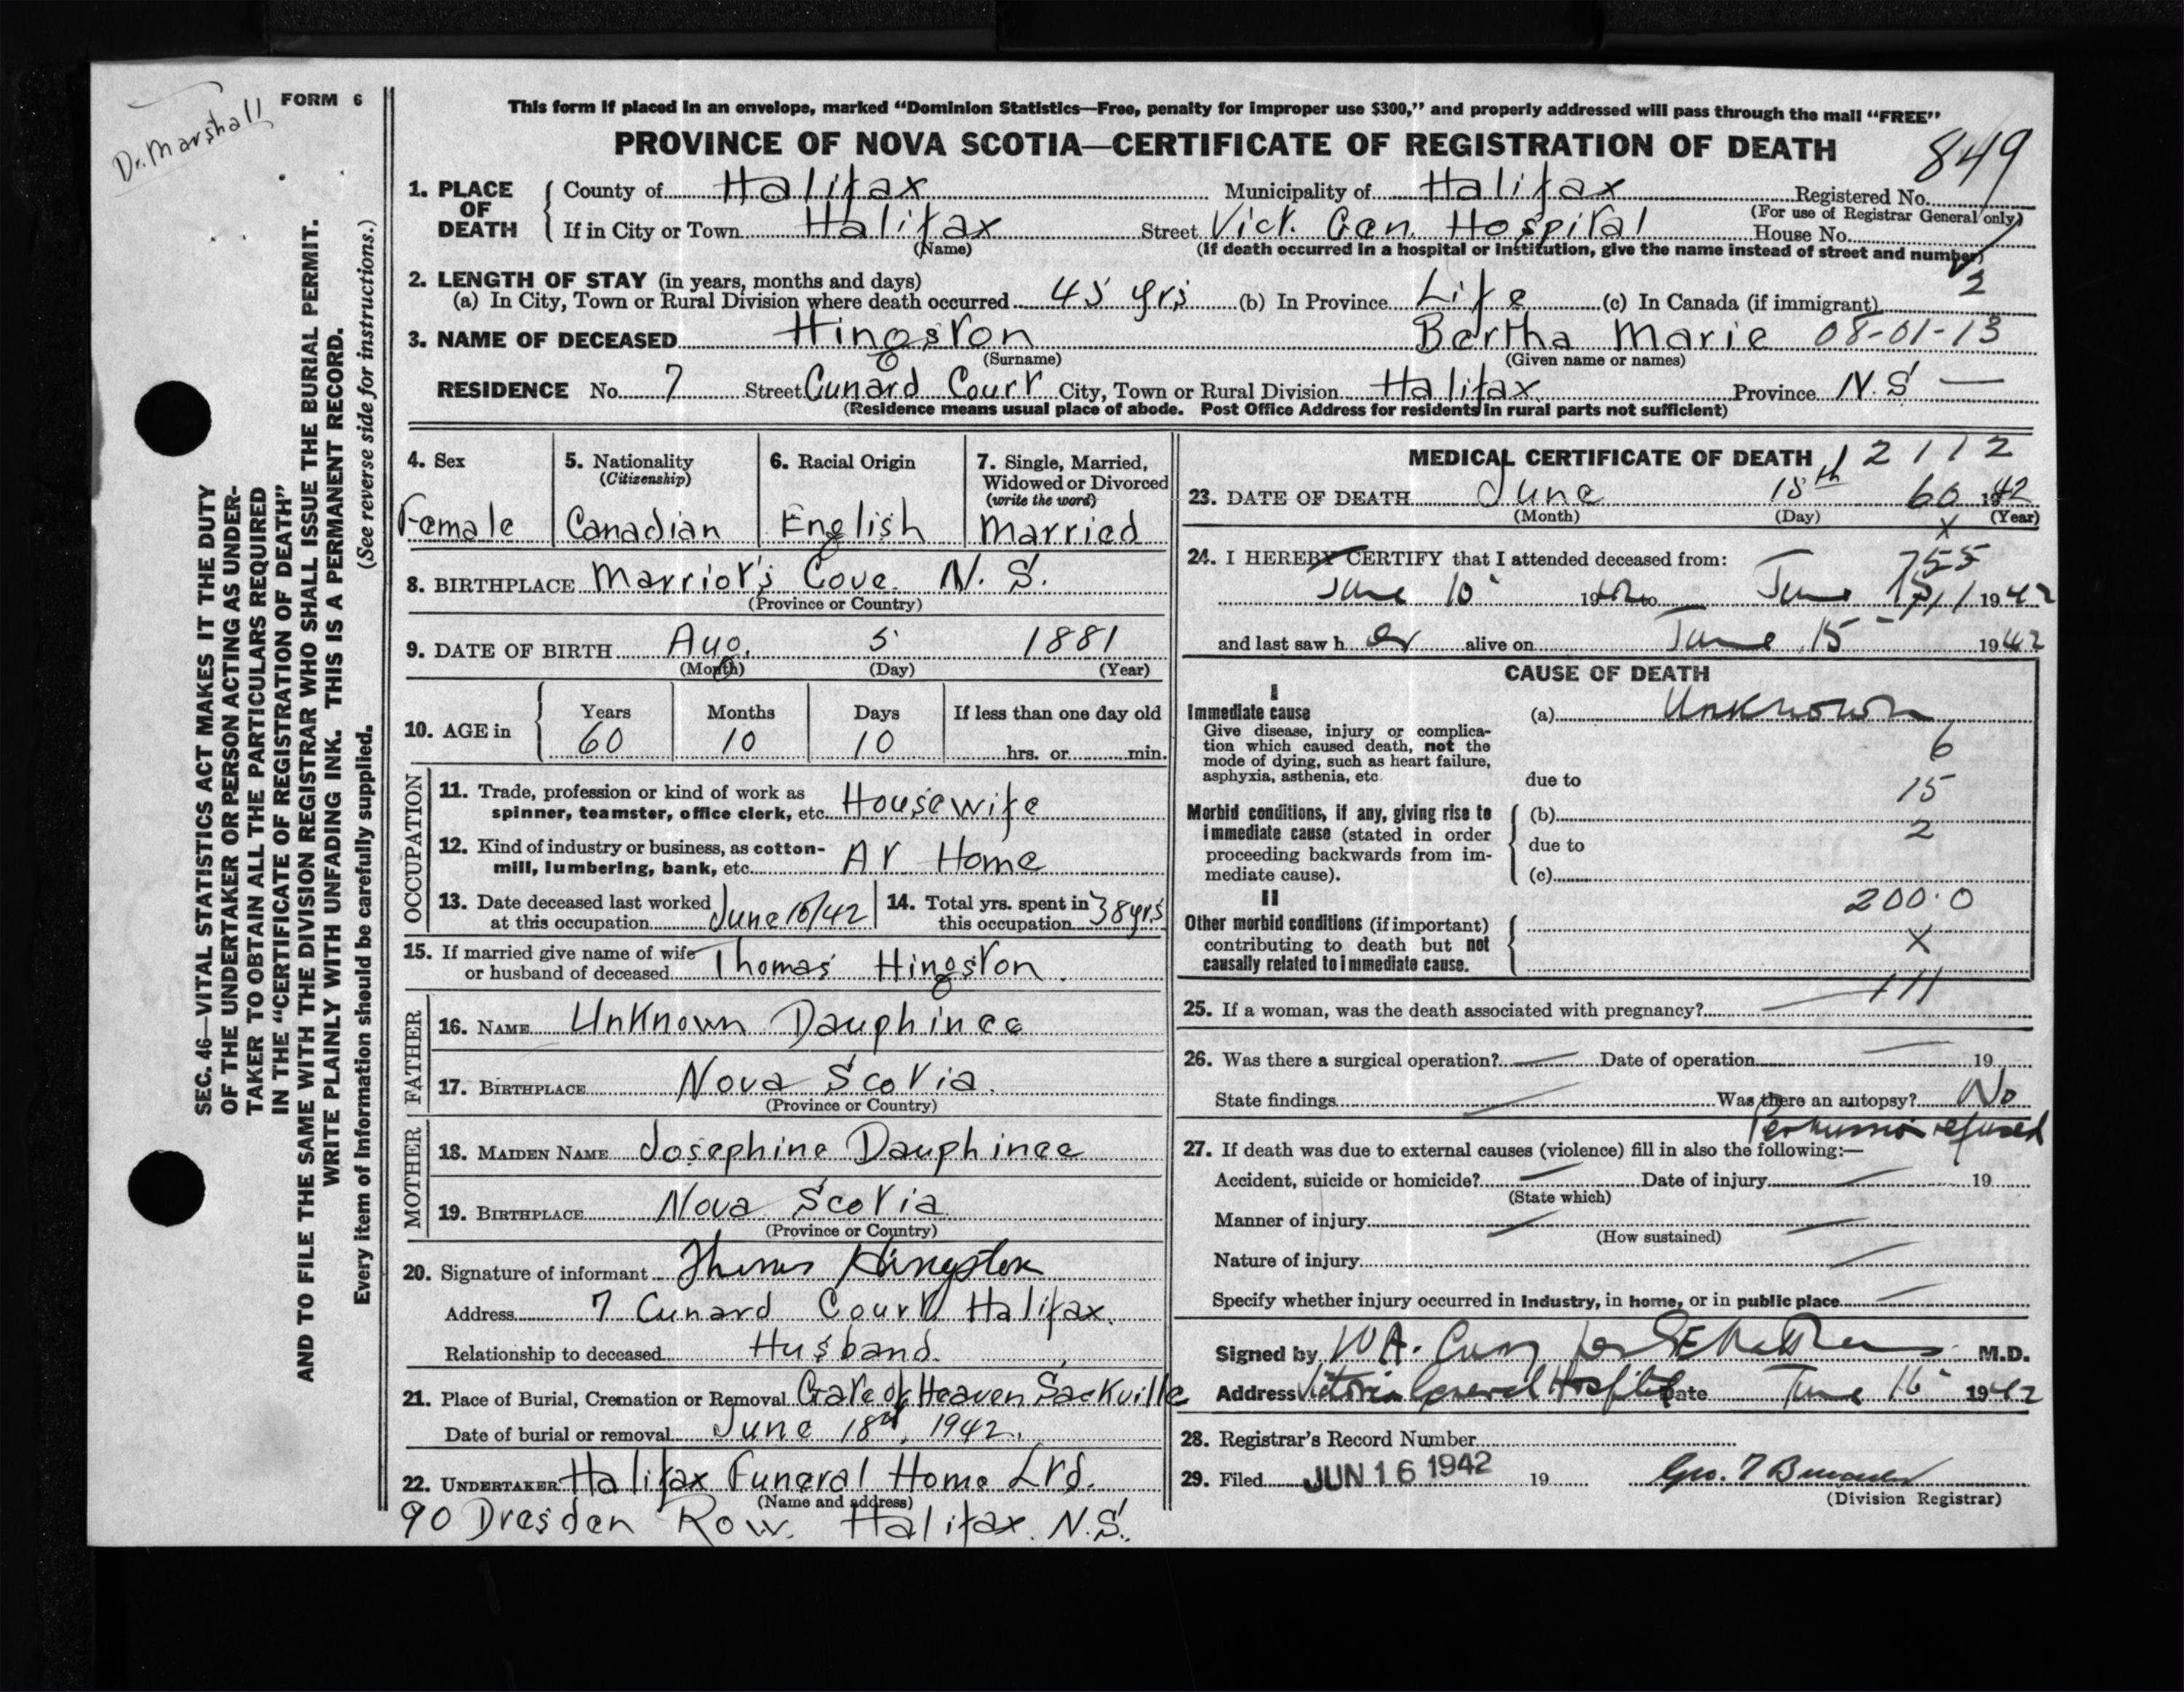 Dr. Marshall
FORM 6
SEC. 46—VITAL STATISTICS ACT MAKES IT THE DUTY
OF THE UNDERTAKER OR PERSON ACTING AS UNDER-
TAKER TO OBTAIN ALL THE PARTICULARS REQUIRED
IN THE "CERTIFICATE OF REGISTRATION OF DEATH"
AND TO FILE THE SAME WITH THE DIVISION REGISTRAR WHO SHALL ISSUE THE BURIAL PERMIT.
WRITE PLAINLY WITH UNFADING INK. THIS IS A PERMANENT RECORD.
Every item of Information should be carefully supplied. (See reverse side for instructions.)
This form if placed in an envelope, marked "Dominion Statistics—Free, penalty for improper use $300," and properly addressed will pass through the mail "FREE"
PROVINCE OF NOVA SCOTIA—CERTIFICATE OF REGISTRATION OF DEATH
849
1. PLACE OF DEATH
County of Halifax Municipality of Halifax Registered No.
(For use of Registrar General only)
If in City or Town Halifax Street Vict. Gen. Hospital House No.
(Name) (If death occurred in a hospital or institution, give the name instead of street and number)
2. LENGTH OF STAY (in years, months and days) 2
(a) In City, Town or Rural Division where death occurred 45 yrs (b) In Province Life (c) In Canada (if immigrant)
3. NAME OF DECEASED Hingston Bertha Marie 08-01-13
(Surname) (Given name or names)
RESIDENCE No. 7 Street Cunard Court City, Town or Rural Division Halifax Province N.S —
(Residence means usual place of abode. Post Office Address for residents in rural parts not sufficient)
4. Sex
Female
5. Nationality
(Citizenship)
Canadian
6. Racial Origin
English
7. Single, Married,
Widowed or Divorced
(write the word)
Married
8. BIRTHPLACE Marriot's Cove. N. S.
(Province or Country)
9. DATE OF BIRTH Aug. 5 1881
(Month) (Day) (Year)
10. AGE in
Years Months Days If less than one day old
60 10 10 hrs. or min.
OCCUPATION
11. Trade, profession or kind of work as
spinner, teamster, office clerk, etc. Housewife
12. Kind of industry or business, as cotton-
mill, lumbering, bank, etc. At Home
13. Date deceased last worked
at this occupation June 10/42
14. Total yrs. spent in
this occupation 38yrs
15. If married give name of wife
or husband of deceased Thomas Hingston.
FATHER
16. NAME Unknown Dauphinee
17. BIRTHPLACE Nova Scotia.
(Province or Country)
MOTHER
18. MAIDEN NAME Josephine Dauphinee
19. BIRTHPLACE Nova Scotia
(Province or Country)
20. Signature of informant Thomas Hingston
Address 7 Cunard Court Halifax.
Relationship to deceased Husband.
21. Place of Burial, Cremation or Removal Gate of Heaven Sackville
Date of burial or removal June 18th, 1942.
22. UNDERTAKER Halifax Funeral Home Ltd.
(Name and address)
90 Dresden Row. Halifax. N.S.
MEDICAL CERTIFICATE OF DEATH 2112
23. DATE OF DEATH June 15th 60 1942
(Month) (Day) (Year)
x
24. I HEREBY CERTIFY that I attended deceased from: 755
June 10 1942 to June 15 1942
and last saw her alive on June 15 1942
CAUSE OF DEATH
I
Immediate cause
Give disease, injury or complica-
tion which caused death, not the
mode of dying, such as heart failure,
asphyxia, asthenia, etc.
(a) Unknown
6
due to
15
Morbid conditions, if any, giving rise to
immediate cause (stated in order
proceeding backwards from im-
mediate cause).
(b)
2
due to
(c)
II
200.0
Other morbid conditions (if important)
contributing to death but not
causally related to immediate cause.
x
111
25. If a woman, was the death associated with pregnancy? —
26. Was there a surgical operation? — Date of operation — 19
State findings — Was there an autopsy? No
Permission refused
27. If death was due to external causes (violence) fill in also the following:—
Accident, suicide or homicide? — Date of injury — 19
(State which)
Manner of injury —
(How sustained)
Nature of injury —
Specify whether injury occurred in Industry, in home, or in public place —
Signed by W A. Curry for M.D.
Address Victoria General Hospital Date June 16 1942
28. Registrar's Record Number
29. Filed JUN 16 1942 19 Geo. T
(Division Registrar)